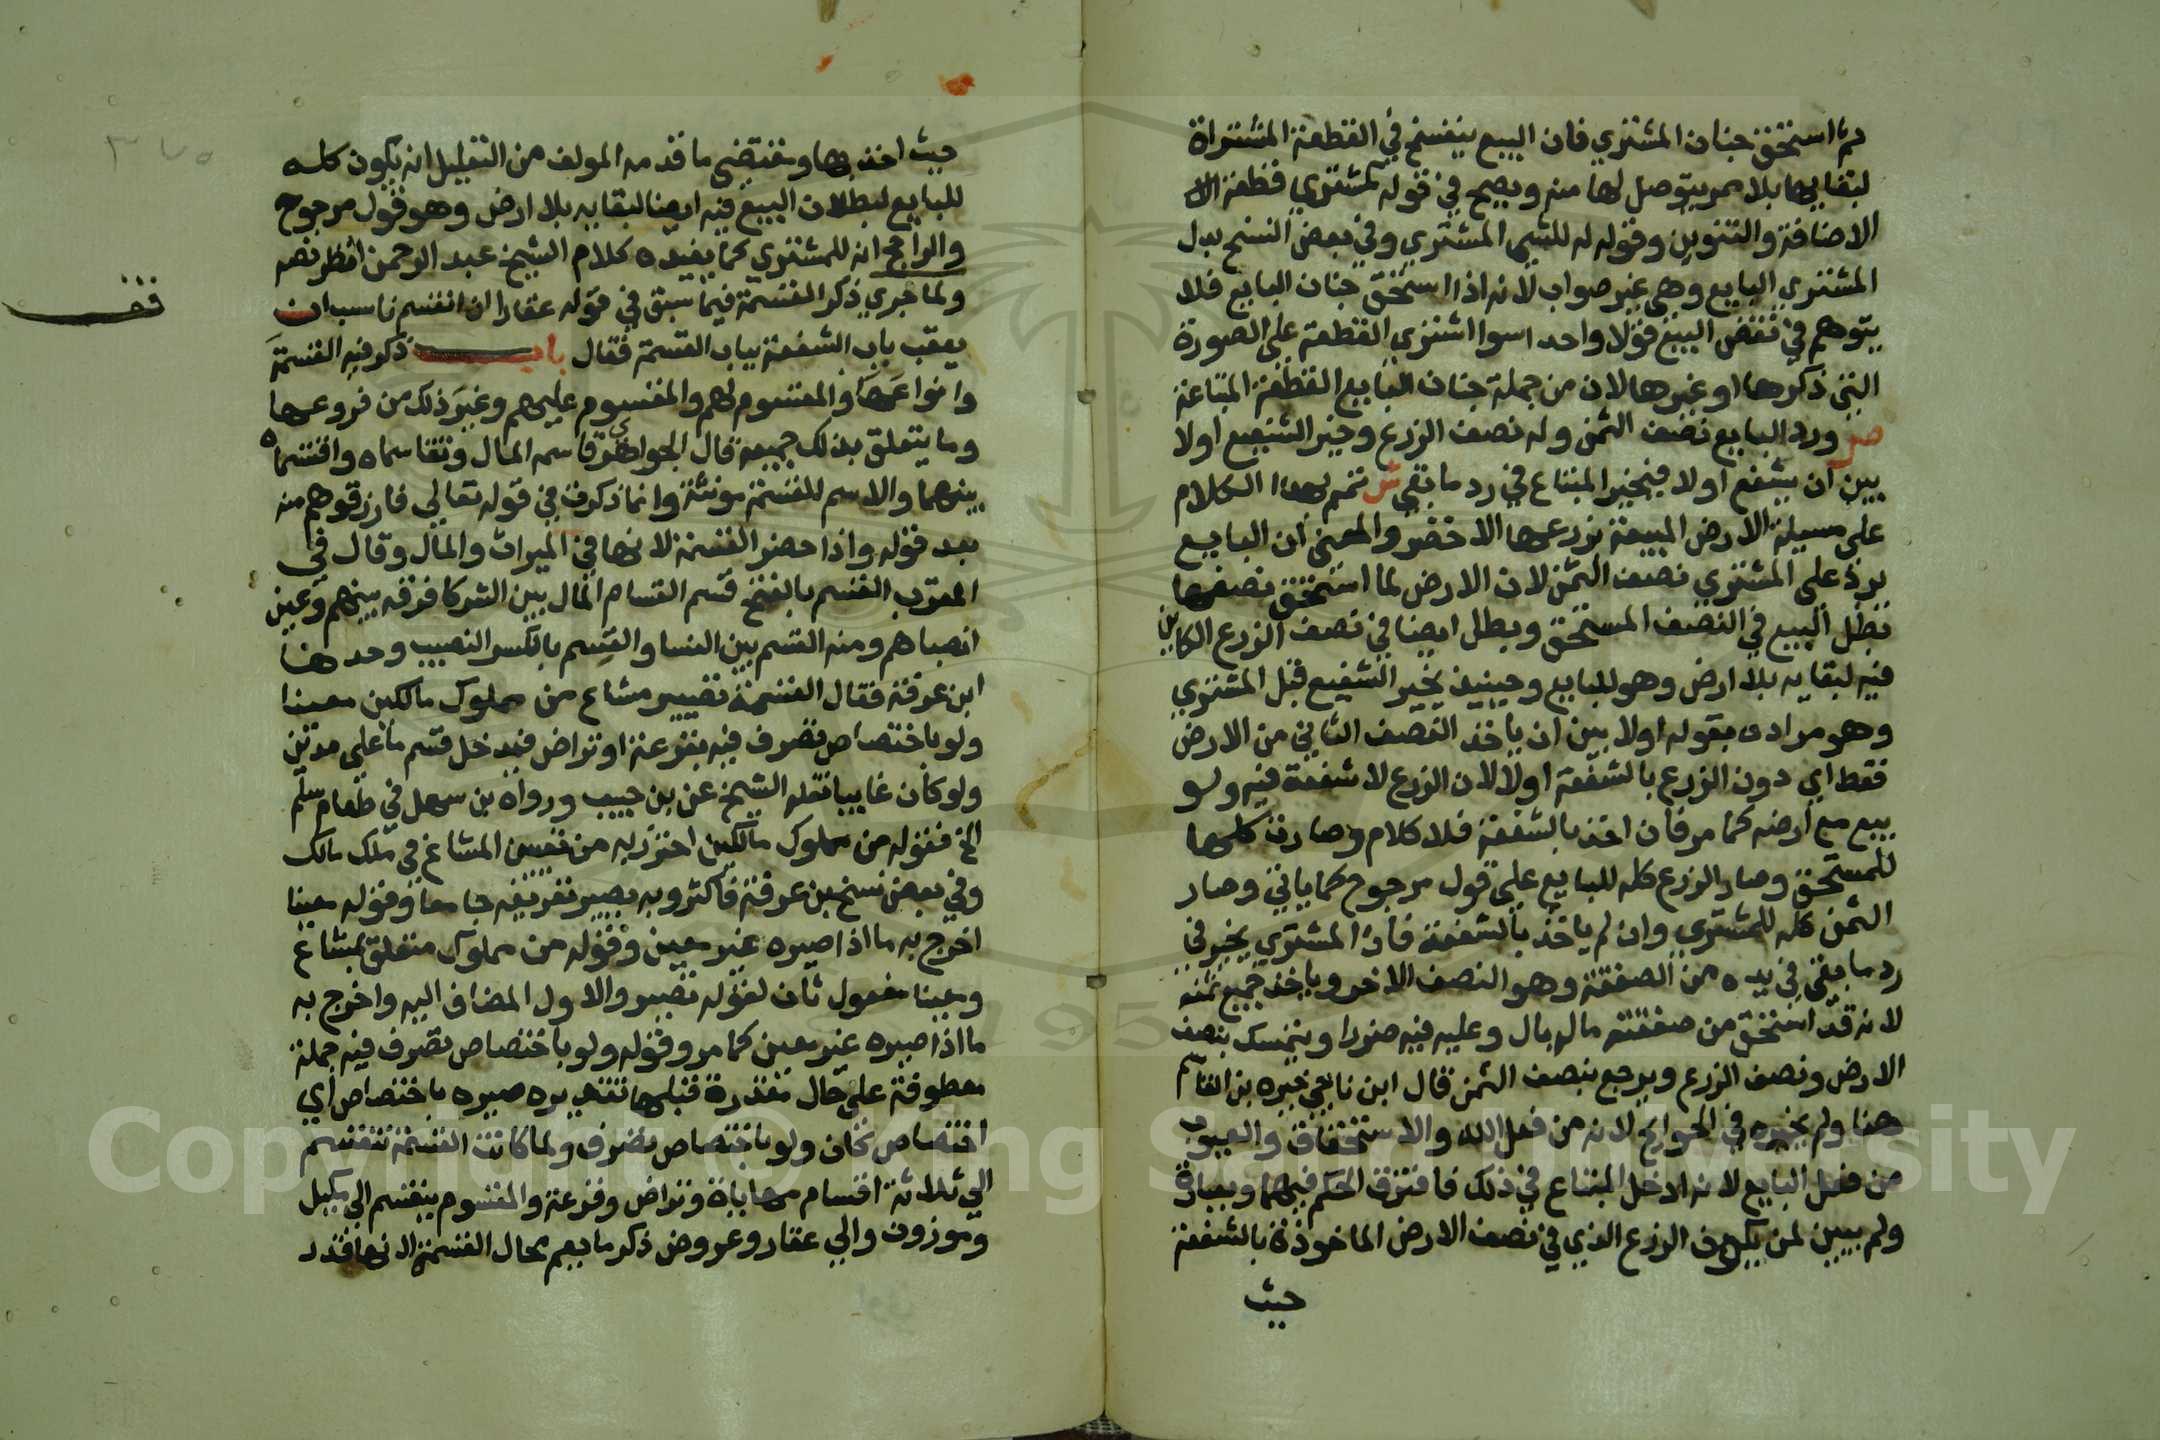 ثم استحق جنان المشتري فان البيع ينفسخ في القطعة المشتراة
لبقايها بلا ممر يتوصل لها منه ويصح في قوله كمشتري قطعة الا
الاضافة والتنوين وقوله له للشي المشتري وفي بعض النسخ بدل
المشتري البايع وهي غير صواب لانه اذا استحق جنان البايع فلا
يتوهم في نقض البيع قولا واحد اسوا اشتري القطعة على الصورة
التي ذكرها او غيرها لان من جملة جنان البايع القطعة المبتاعة
ص ورد البايع نصف الثمن وله نصف الزرع وخير الشفيع اولا
بين ان يشفع اولا فيخير المبتاع في رد ما بقي ش تمم بهذا الكلام
على مسيلة الارض المبيعة بزرعها الاخضر والمعنى ان البايع
يرد على المشتري نصف الثمن لان الارض لما استحق نصفها
بطل البيع في النصف المستحق وبطل ايضا في نصف الزرع الكاين
فيه لبقايه بلا ارض وهو للبايع وحينيذ يخير الشفيع قبل المشتري
وهو مراده بقوله اولا بين ان ياخذ النصف الثاني من الارض
فقط اي دون الزرع بالشفعة اولا لان الزرع لا شفعة فيه ولو
بيع مع ارضه كما مر فان اخذ بالشفعة فلا كلام وصارت كلها
للمستحق وصار الزرع كله للبايع على قول مرجوح كما ياتي وصار
الثمن كله للمشتري وان لم ياخذ بالشفعة فان المشتري يخير في
رد ما بقي في يده من الصفقة وهو النصف الاخر وياخذ جميع ثمنه
لانه قد استحق من صفقته ما له بال وعليه فيه ضررا ويتمسك بنصف
الارض ونصف الزرع ويرجع بنصف الثمن قال ابن ناجي خيره بن القاسم
هنا ولم يخيره في الجوايح لانه من فعل الله والاستحقاق والعيوب
من فعل البايع لانه ادخل المبتاع في ذلك فافترق الحكم فيهما
ولم يبين لمن يكون الزرع الذي في نصف الارض الماخوذة بالشفعة
حيث
حيث اخذ بها ومقتضى ما قدمه المولف من التعليل انه يكون كله
للبايع لبطلان البيع فيه ايضا لبقايه بلا ارض وهو قول مرجوح
والراجح انه للمشتري كما يفيده كلام الشيخ عبد الرحمن انظر نصه
ولما جري ذكر القسمة فيما سبق في قوله عقارا ان انقسم ناسب ان
يعقب باب الشفعة بباب القسمة فقال باب ذكر فيه القسمة
وانواعها والمقسوم لهم والمقسوم عليهم وغير ذلك من فروعها
وما يتعلق بذلك جميعه قال الجواهري قاسمه المال وتقاسماه واقتسماه
بينهما والاسم للقسمة مونثة وانما ذكرت في قوله تعالي فارزقوهم منه
بعد قوله واذا حضر القسمة لانها في الميراث والمال وقال في
المغرب القسم بالفتح قسم القسام المال بين الشركا فرقه بينهم وعين
انصباهم ومنه القسم بين النسا والقسم بالكسر النصيب وحدها
ابن عرفة فقال القسمة تصيير مشاع من مملوك مالكين معينا
ولو باختصاص تصرف فيه بقرعة او تراض فيدخل قسم ما على مدين
ولو كان غايبا نقله الشيخ عن بن حبيب ورواه بن سهل في طعام سلم
الخ فقوله من مملوك مالكين احترز به من تعيين المشاع في ملك مالك
وفي بعض نسخ بن عرفة فاكثر وبه يصير تعريفه جامعا وقوله معينا
اخرج به ما اذا صيره غير معين وقوله من مملوك متعلق بمشاع
ومعينا مفعول ثان لقوله تصيير والاول المضاف اليه واخرج به
ما اذا صيره غير معين كما مر وقوله ولو باختصاص تصرف فيه جملة
معطوفة على حال مقدرة قبلها تقديره صيره باختصاص اي
اختصاص كان ولو باختصاص تصرف ولما كانت القسمة تنقسم
الي ثلاثة اقسام مهاياة وتراض وقرعة والمقسوم ينقسم الى مكيل
وموزون والي عقار وعروض ذكر ما يعم محال القسمة